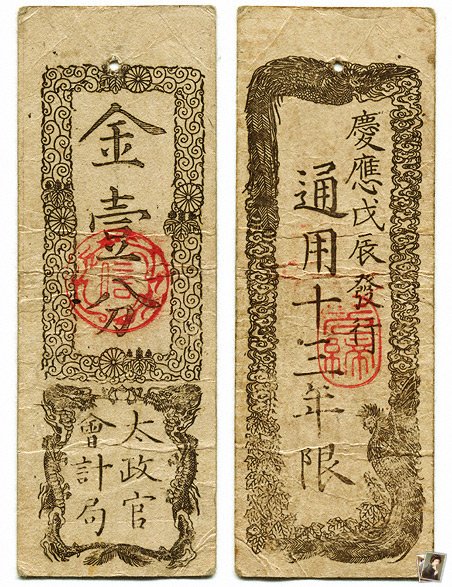 金壹分
太政官
會計局
慶應戊辰發行
通用十三年限